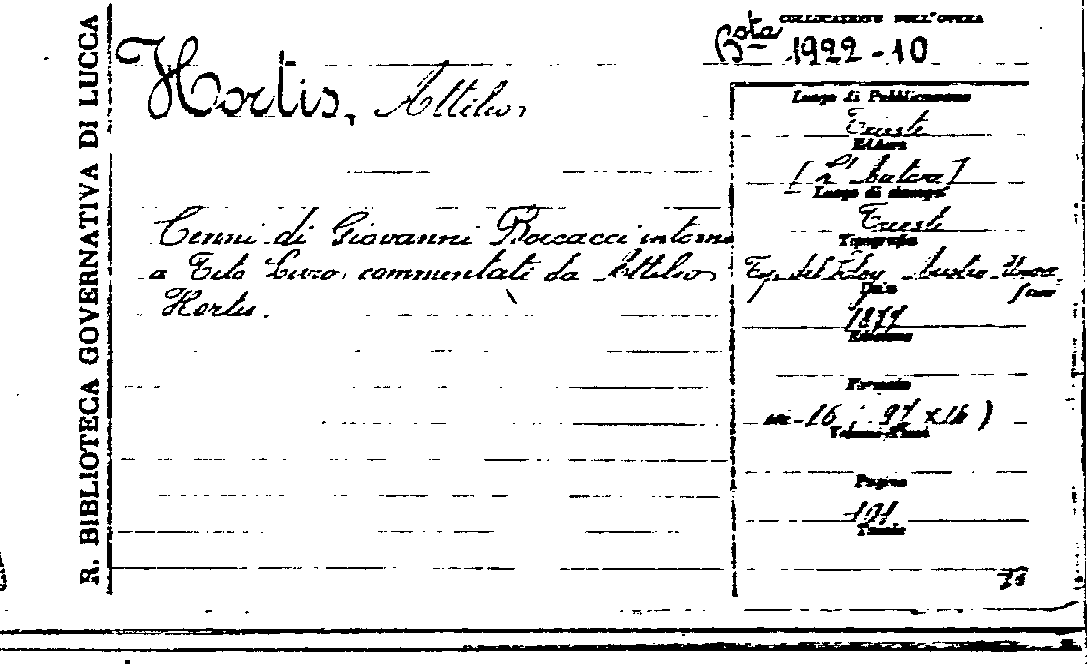 R. BIBLIOTECA GOVERNATIVA DI LUCCA
COLLOCAZIONE DELL'OPERA
Bsta 1922-10
Hortis, Attilio
Cenni di Giovanni Boccacci intorno
a Tito Livio commentati da Attilio
Hortis.
Luogo di Pubblicazione
Trieste
Editore
[L'Autore]
Luogo di stampa
Trieste
Tipografia
Tip. del Lloy Austro-Unga
Data
1877
Edizione
Formato
in-16
Volume
Pagine
101
Tavole